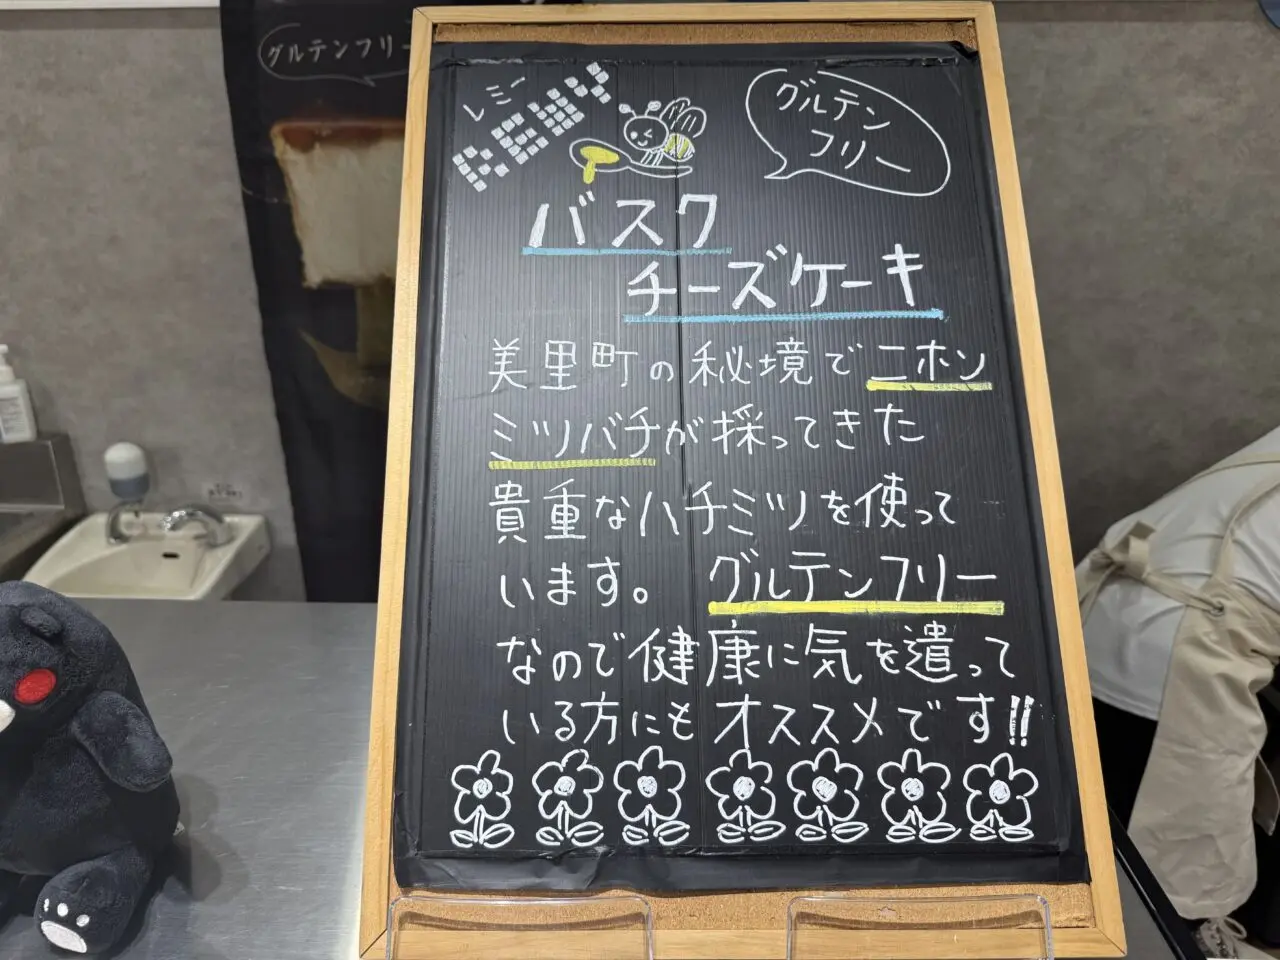 グルテンフリー
レミー
REMY
グルテン
フリー
バスク
チーズケーキ
美里町の秘境でニホン
ミツバチが採ってきた
貴重なハチミツを使って
います。 グルテンフリー
なので健康に気を遣って
いる方にもオススメです!!